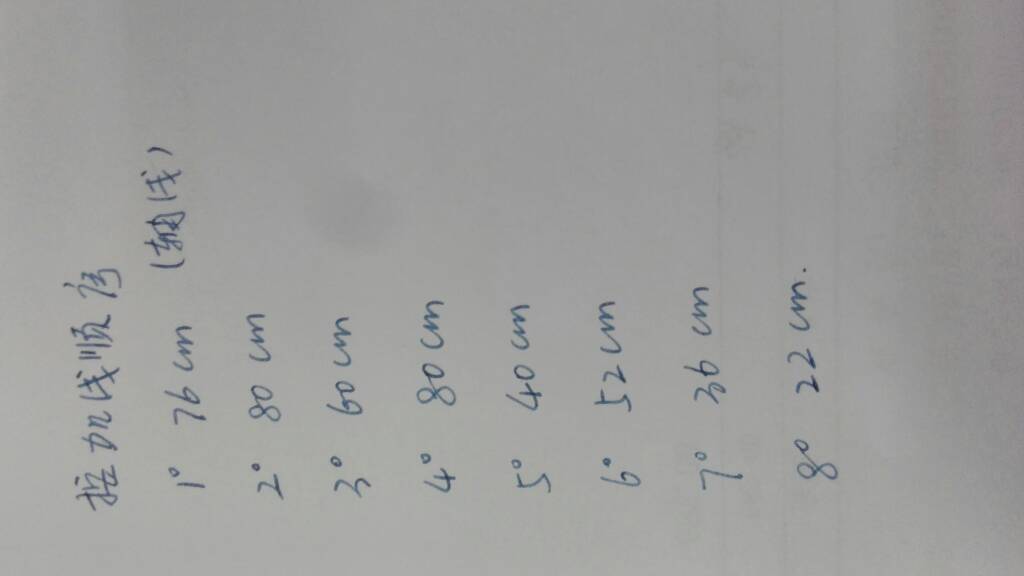 拉加线顺序
1° 76cm (轴线)
2° 80cm
3° 60cm
4° 80cm
5° 40cm
6° 52cm
7° 36cm
8° 22cm.